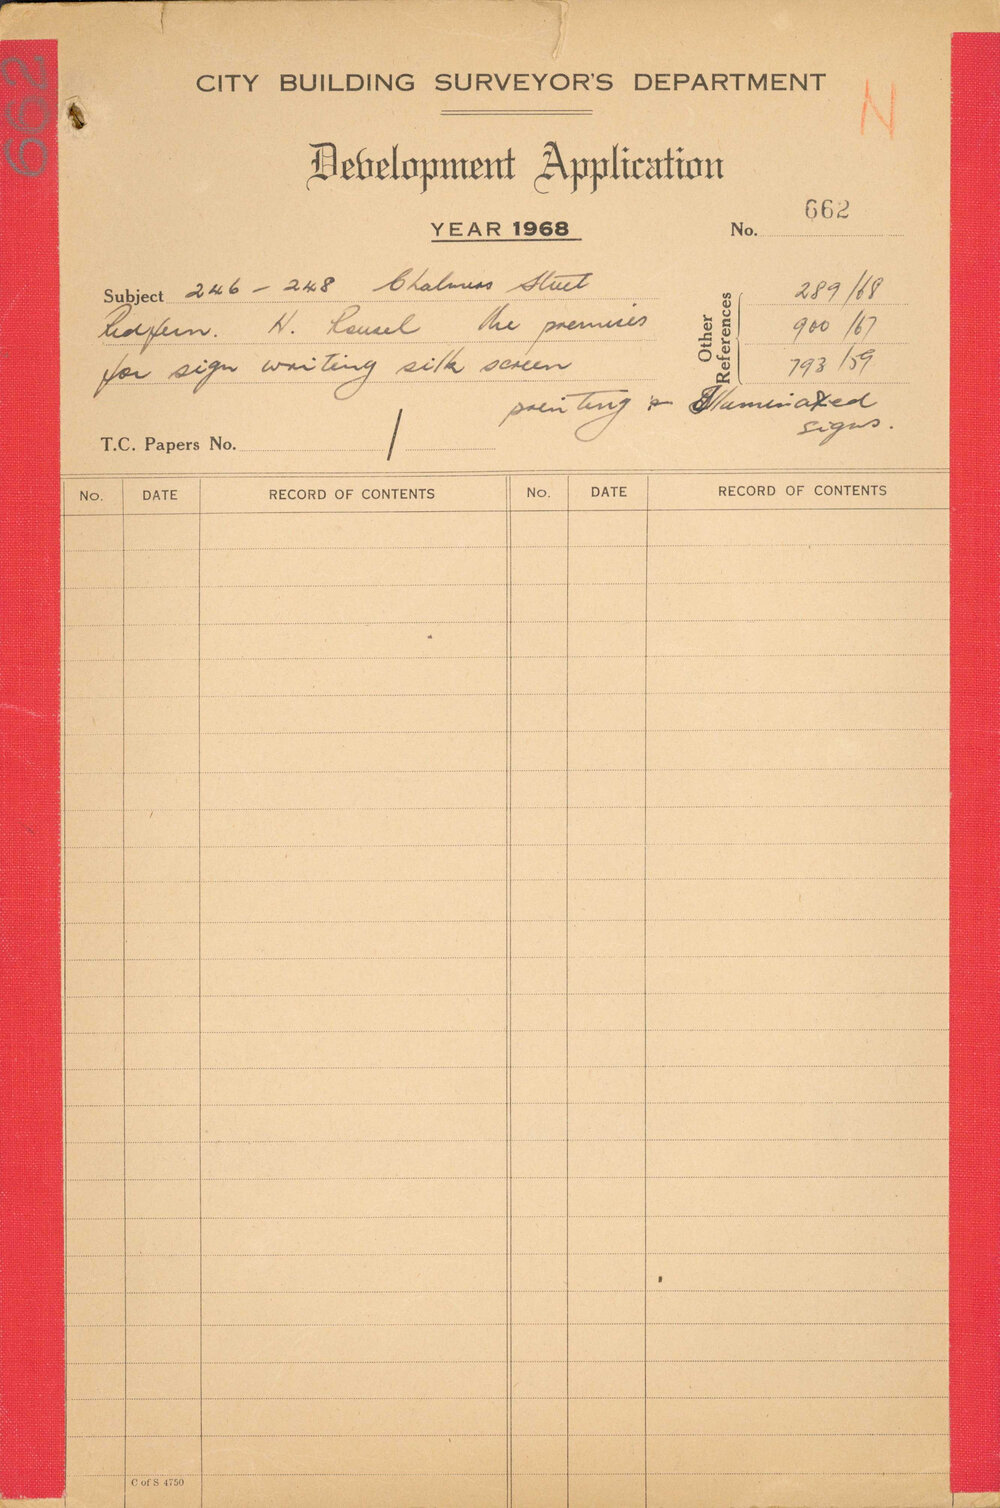 662
CITY BUILDING SURVEYOR'S DEPARTMENT
N
Development Application
YEAR 1968
No. 662
Subject 246 - 248 Chalmers Street
Redfern. H. the premises
for sign writing silk screen
printing & Illuminated
signs.
Other References
289/68
900/67
793/59
T.C. Papers No. /
No. DATE RECORD OF CONTENTS No. DATE RECORD OF CONTENTS
C of S 4750